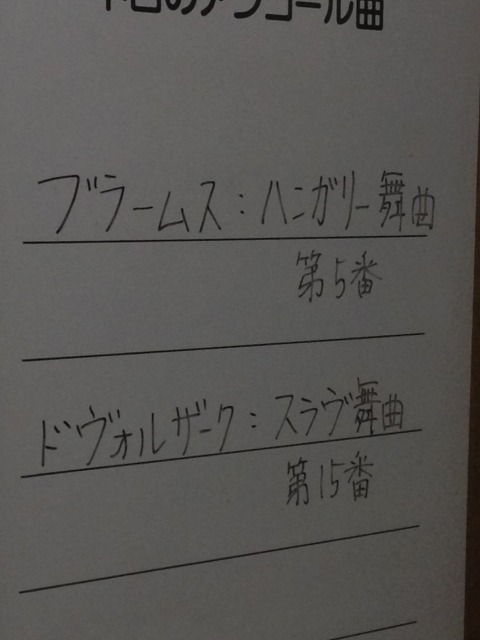 本日のアンコール曲
ブラームス：ハンガリー舞曲
第5番
ドヴォルザーク：スラヴ舞曲
第15番